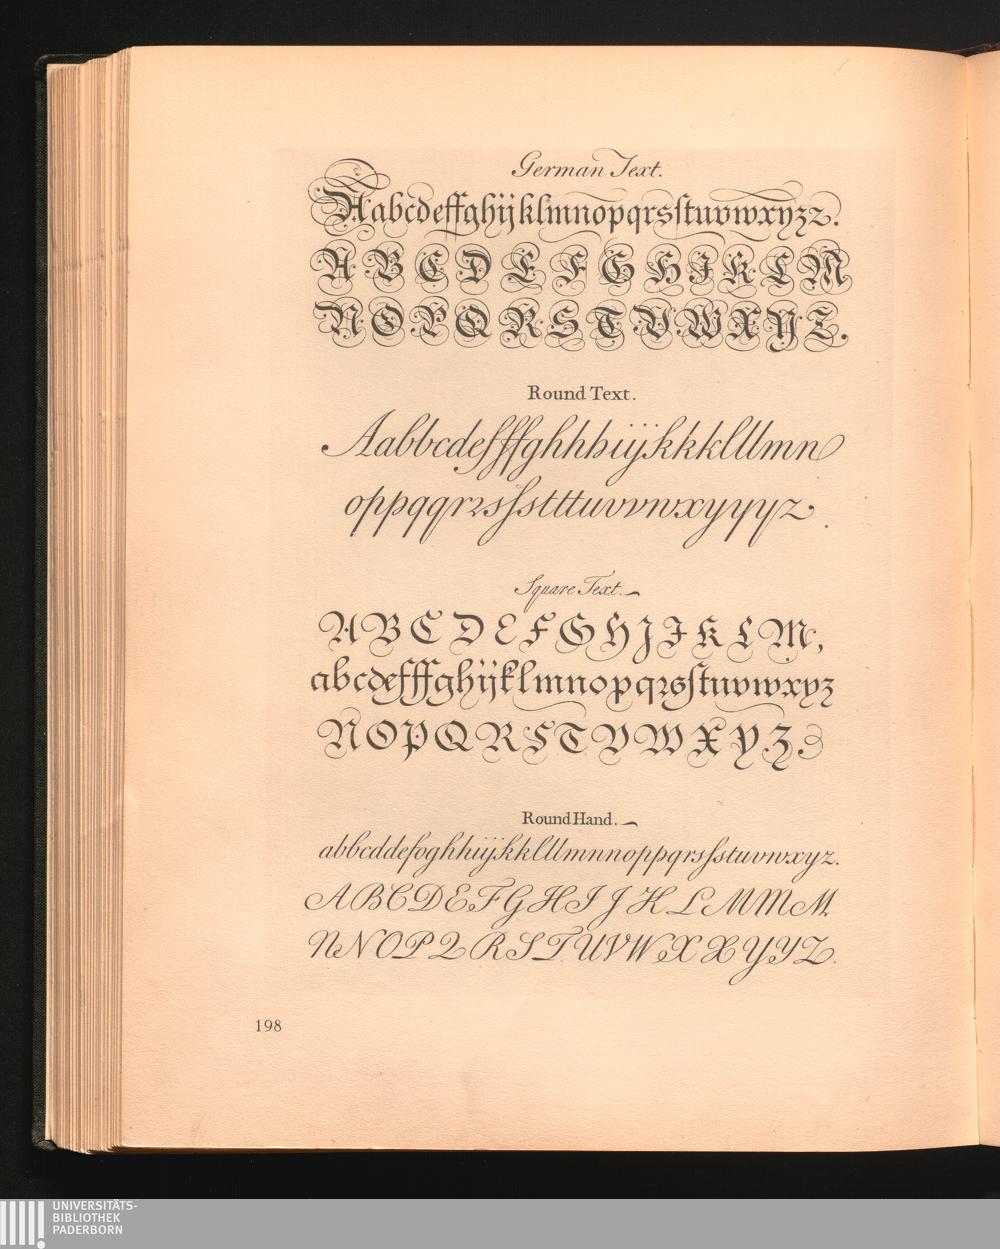 German Text.
Aabcdeffghijklmnopqrsſtuvwxyzz.
A B C D E F G H I K L M
N O P Q R S T V W X Y Z.
Round Text.
Aabbcdefffghhhiijkkklllmn
oppqqrrsſstttuvvwxyyyz.
Square Text.
A B C D E F G H J I K L M,
abcdefffghijklmnopqrsſtuvwxyz
N O P Q R S T V W X Y Z.
Round Hand.
abbcddefoghhiijkklllmnnnoppqrsſstuvwxyz.
A B C D E F G H I J K L M M M.
N N O P Q R S T U V W X X Y Y Z.
198
UNIVERSITÄTS-
BIBLIOTHEK
PADERBORN